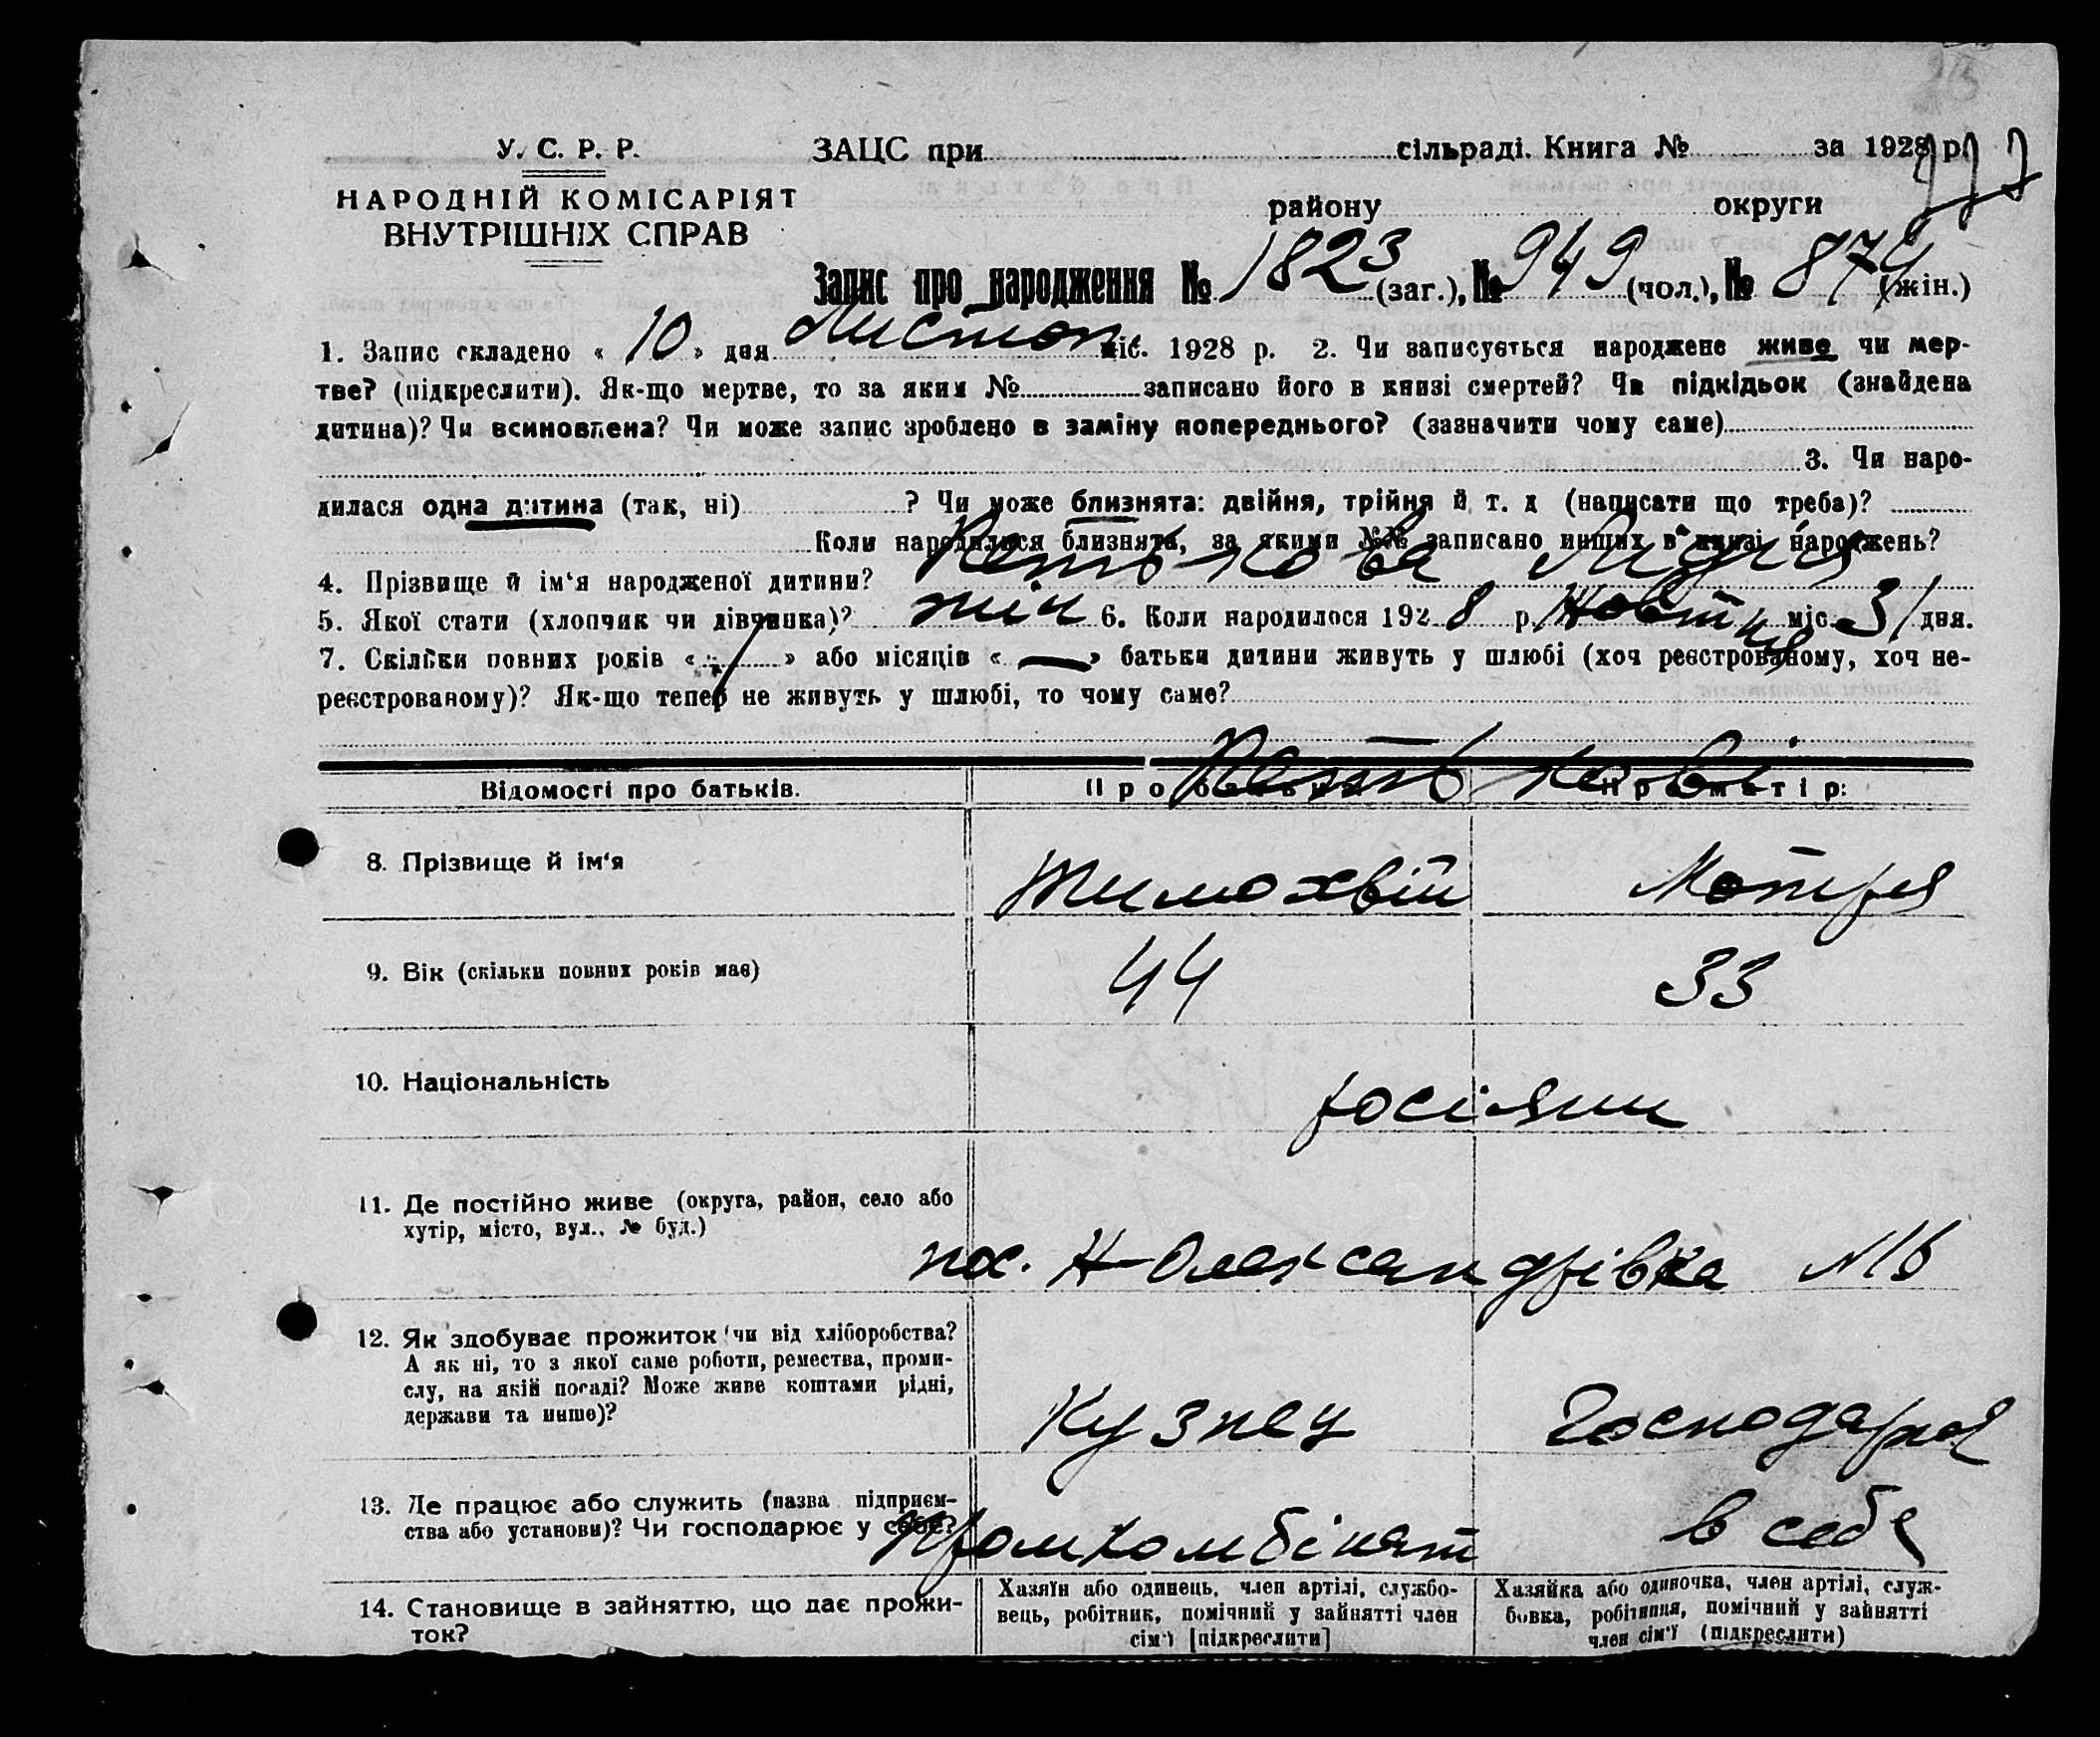 У. С. Р. Р.
НАРОДНІЙ КОМІСАРІЯТ
ВНУТРІШНІХ СПРАВ
ЗАЦС при сільраді. Книга № за 1928 р.
району округи
Запис про народження № 1823 (заг.), № 949 (чол.), № 874 (жін.)
1. Запис складено « 10 » дня Листоп міс. 1928 р. 2. Чи записується народжене живе чи мер-
тве? (підкреслити). Як-що мертве, то за яким № записано його в книзі смертей? Чи підкідьок (знайдена
дитина)? Чи всиновлена? Чи може запис зроблено в заміну попереднього? (зазначити чому саме)
3. Чи наро-
дилася одна дитина (так, ні) ? Чи може близнята: двійня, трійня й т. д (написати що треба)?
Коли народилися близнята, за якими №№ записано инших в книзі народжень?
4. Прізвище й ім‘я народженої дитини? Лидія
5. Якої стати (хлопчик чи дівчинка)? жін 6. Коли народилося 1928 р. Жовтня міс. 31 дня.
7. Скільки повних років « » або місяців « — » батьки дитини живуть у шлюбі (хоч реєстрованому, хоч не-
реєстрованому)? Як-що тепер не живуть у шлюбі, то чому саме?
Відомості про батьків. Про батька: Про матір:
8. Прізвище й ім‘я Тимохвій Мотря
9. Вік (скільки повних років має) 44 33
10. Національність росіяни
11. Де постійно живе (округа, район, село або
хутір, місто, вул., № буд.)
пос. Н-Олександрівка №16
12. Як здобуває прожиток (чи від хліборобства?
А як ні, то з якої саме роботи, ремества, проми-
слу, на якій посаді? Може живе коштами рідні,
держави та инше)?
Кузнец Господарка
13. Де працює або служить (назва підприєм-
ства або установи)? Чи господарює у себе?
Промкомбінат в себе
14. Становище в зайняттю, що дає прожи-
ток?
Хазяїн або одинець, член артілі, службо-
вець, робітник, помічний у зайнятті член
сім‘ї [підкреслити]
Хазяйка або одиночка, член артілі, служ-
бовка, робітниця, помічний у зайнятті
член сім‘ї (підкреслити)